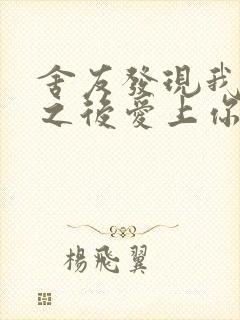 舍友發現我
之後愛上你
楊飛翼